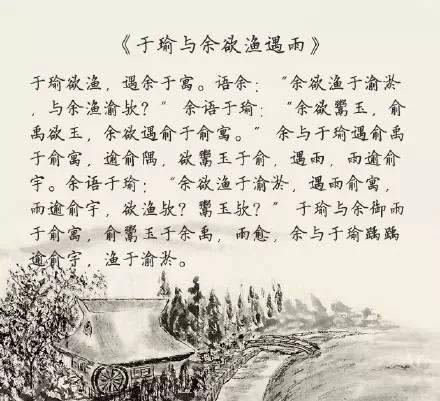 《于瑜与余欲渔遇雨》
于瑜欲渔，遇余于寓。语余：“余欲渔于渝淤
，与余渔渝欤？”余语于瑜：“余欲鬻玉，俞
禹欲玉，余欲遇俞于俞寓。”余与于瑜遇俞禹
于俞寓，逾俞隅，欲鬻玉于俞，遇雨，雨逾俞
宇。余语于瑜：“余欲渔于渝淤，遇雨俞寓，
雨逾俞宇，欲渔欤？鬻玉欤？”于瑜与余御雨
于俞寓，俞鬻玉于余禹，雨愈，余与于瑜踽踽
逾俞宇，渔于渝淤。